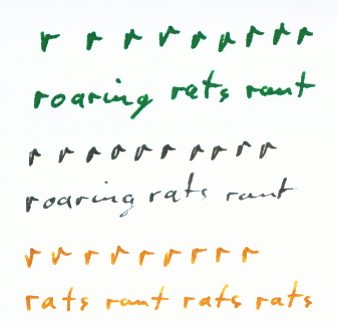 r r r r r r r r r
roaring rats rant
r r r r r r r r r
roaring rats rant
r r r r r r r r r
rats rant rats rats